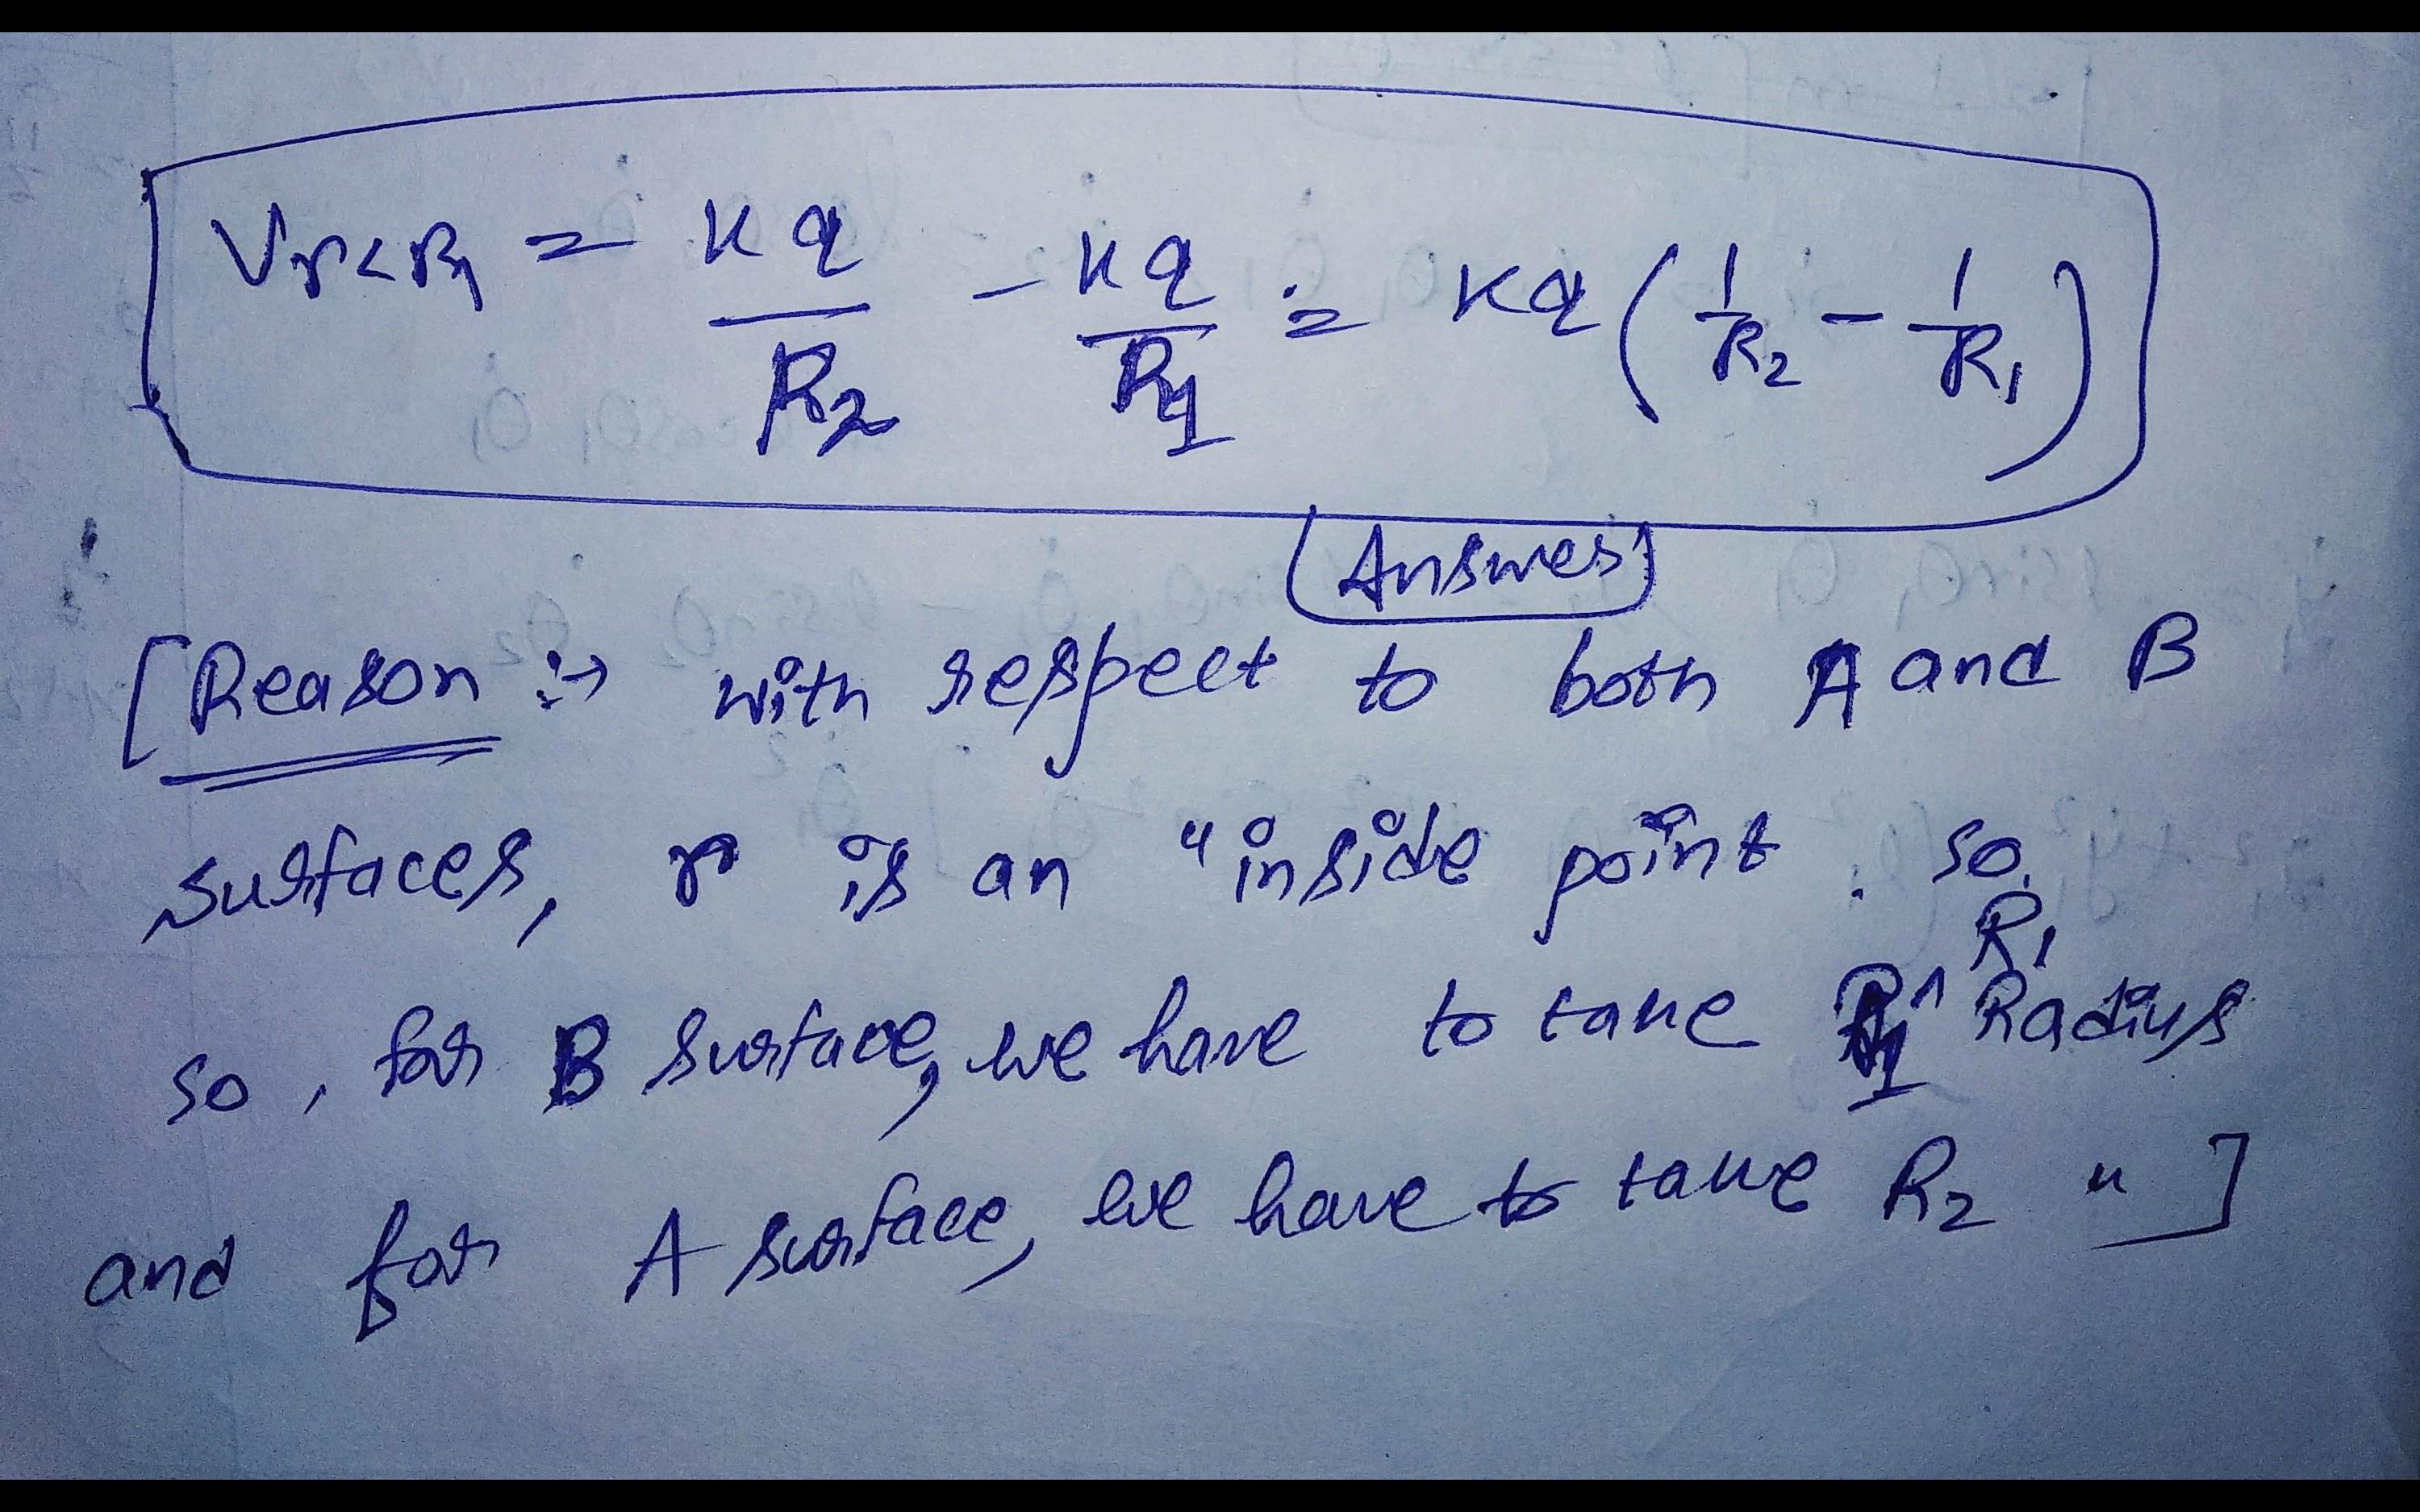 V r<R₁ = Kq/R₂ - Kq/R₁ = Kq (1/R₂ - 1/R₁)
(Answer)
[Reason :→ with respect to both A and B
surfaces, r is an "inside point. so,
R₁
so, for B surface, we have to take ^ Radius
and for A surface, we have to take R₂ "]